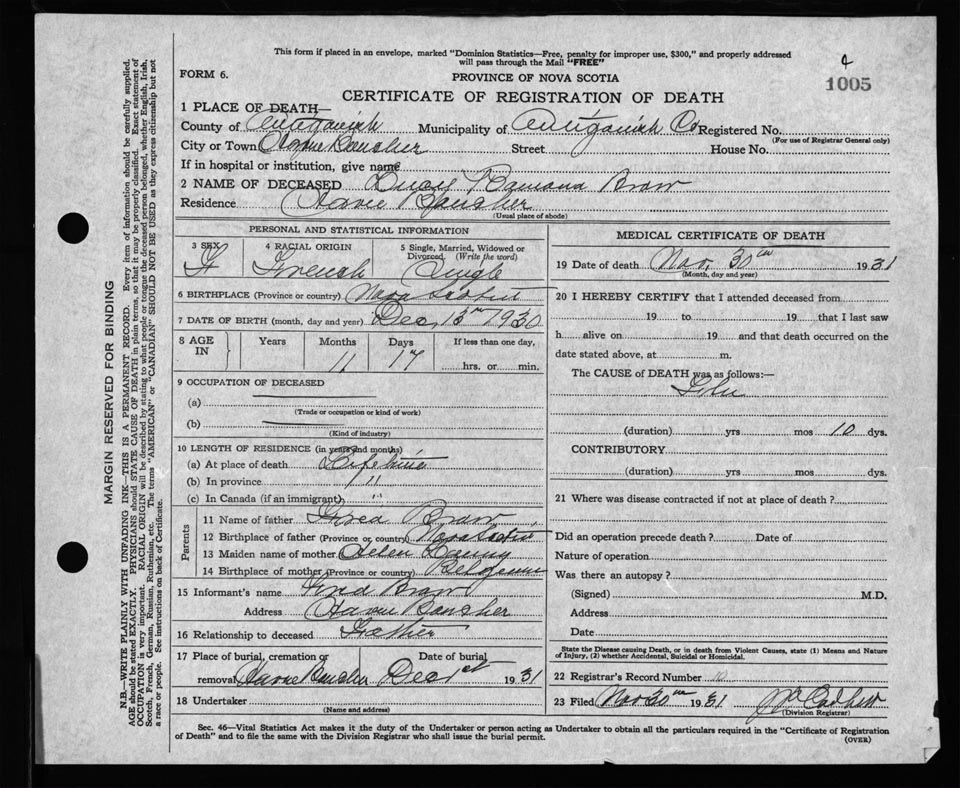 This form if placed in an envelope, marked "Dominion Statistics—Free, penalty for improper use, $300," and properly addressed
will pass through the Mail "FREE"
FORM 6.
PROVINCE OF NOVA SCOTIA
4
1005
CERTIFICATE OF REGISTRATION OF DEATH
1 PLACE OF DEATH—
County of Antigonish Municipality of Antigonish Co Registered No.
(For use of Registrar General only)
City or Town Havre Boucher Street House No.
If in hospital or institution, give name
2 NAME OF DECEASED
Residence Havre Boucher
(Usual place of abode)
PERSONAL AND STATISTICAL INFORMATION
3 SEX 4 RACIAL ORIGIN 5 Single, Married, Widowed or Divorced. (Write the word)
F French Single
6 BIRTHPLACE (Province or country) Nova Scotia
7 DATE OF BIRTH (month, day and year) Dec 13th 1930
8 AGE IN Years Months Days If less than one day,
11 17 hrs. or min.
9 OCCUPATION OF DECEASED
(a)
(Trade or occupation or kind of work)
(b)
(Kind of industry)
10 LENGTH OF RESIDENCE (in years and months)
(a) At place of death Life time
(b) In province "
(c) In Canada (if an immigrant) "
Parents
11 Name of father
12 Birthplace of father (Province or country) Nova Scotia
13 Maiden name of mother Helen
14 Birthplace of mother (Province or country) Belgium
15 Informant's name
Address Havre Boucher
16 Relationship to deceased Father
17 Place of burial, cremation or removal Havre Boucher Date of burial Dec 1st 1931
18 Undertaker
(Name and address)
MEDICAL CERTIFICATE OF DEATH
19 Date of death Nov. 30th 1931
(Month, day and year)
20 I HEREBY CERTIFY that I attended deceased from
19 to 19 that I last saw
h alive on 19 and that death occurred on the
date stated above, at m.
The CAUSE of DEATH was as follows:—
(duration) yrs mos 10 dys.
CONTRIBUTORY
(duration) yrs mos dys.
21 Where was disease contracted if not at place of death?
Did an operation precede death? Date of
Nature of operation
Was there an autopsy?
(Signed) M.D.
Address
Date
State the Disease causing Death, or in death from Violent Causes, state (1) Means and Nature
of Injury, (2) whether Accidental, Suicidal or Homicidal.
22 Registrar's Record Number 10
23 Filed Nov 30th 1931
(Division Registrar)
Sec. 46—Vital Statistics Act makes it the duty of the Undertaker or person acting as Undertaker to obtain all the particulars required in the "Certificate of Registration
of Death" and to file the same with the Division Registrar who shall issue the burial permit.
(OVER)
MARGIN RESERVED FOR BINDING
N.B.—WRITE PLAINLY WITH UNFADING INK—THIS IS A PERMANENT RECORD. Every item of information should be carefully supplied.
AGE should be stated EXACTLY. PHYSICIANS should STATE CAUSE OF DEATH in plain terms, so that it may be properly classified. Exact statement of
OCCUPATION is very important. RACIAL ORIGIN will be described by stating to what people or tongue the deceased person belonged, whether English, Irish,
Scotch, French, German, Russian, Ruthenian, etc. The terms "AMERICAN" or "CANADIAN" SHOULD NOT BE USED as they express citizenship but not
a race or people. See instructions on back of Certificate.